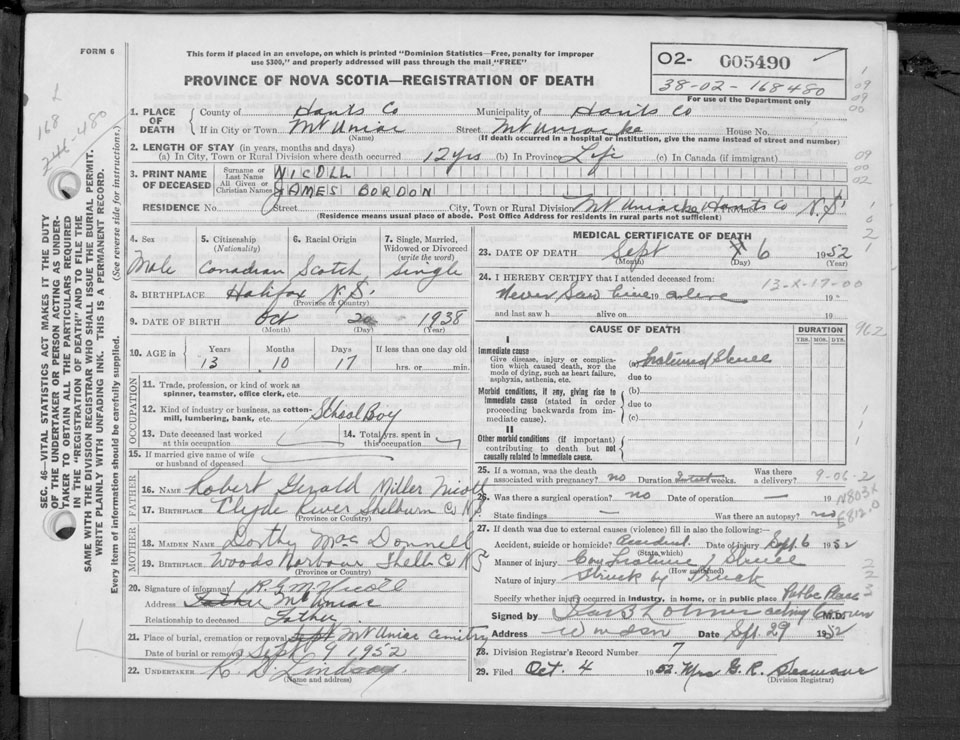 FORM 6
This form if placed in an envelope, on which is printed "Dominion Statistics—Free, penalty for improper
use $300," and properly addressed will pass through the mail "FREE"
PROVINCE OF NOVA SCOTIA—REGISTRATION OF DEATH
02- 005490
38-02-168480
For use of the Department only
168480
SEC. 46—VITAL STATISTICS ACT MAKES IT THE DUTY
OF THE UNDERTAKER OR PERSON ACTING AS UNDER-
TAKER TO OBTAIN ALL THE PARTICULARS REQUIRED
IN THE "REGISTRATION OF DEATH" AND TO FILE THE
SAME WITH THE DIVISION REGISTRAR WHO SHALL ISSUE THE BURIAL PERMIT.
WRITE PLAINLY WITH UNFADING INK. THIS IS A PERMANENT RECORD.
Every item of information should be carefully supplied. (See reverse side for instructions.)
1. PLACE OF DEATH County of Hants Co Municipality of Hants Co
If in City or Town Mt Uniac Street Mt Uniacke House No.
(Name) (If death occurred in a hospital or institution, give the name instead of street and number)
2. LENGTH OF STAY (in years, months and days)
(a) In City, Town or Rural Division where death occurred 12 yrs (b) In Province Life (c) In Canada (if immigrant)
3. PRINT NAME OF DECEASED Surname or Last Name NICOLL
All Given or Christian Names JAMES BORDON
RESIDENCE No. Street City, Town or Rural Division Mt Uniacke Hants Co N.S.
(Residence means usual place of abode. Post Office Address for residents in rural parts not sufficient)
4. Sex Male
5. Citizenship (Nationality) Canadian
6. Racial Origin Scotch
7. Single, Married, Widowed or Divorced (write the word) Single
8. BIRTHPLACE Halifax N.S.
(Province or Country)
9. DATE OF BIRTH Oct 20 1938
(Month) (Day) (Year)
10. AGE in Years Months Days If less than one day old
13 10 17 hrs. or min.
OCCUPATION
11. Trade, profession, or kind of work as spinner, teamster, office clerk, etc.
12. Kind of industry or business, as cotton-mill, lumbering, bank, etc. School Boy
13. Date deceased last worked at this occupation
14. Total yrs. spent in this occupation
15. If married give name of wife or husband of deceased
FATHER
16. NAME Robert Gerald Miller Nicoll
17. BIRTHPLACE Clyde River Shelburn Co N.S.
(Province or Country)
MOTHER
18. MAIDEN NAME Dorthy MacDonnell
19. BIRTHPLACE Woods Harbour Shelb Co N S
(Province or Country)
20. Signature of informant R G M Nicoll
Address Father Mt Uniac
Relationship to deceased Father
21. Place of burial, cremation or removal Sept Mt Uniac Cemitry
Date of burial or removal Sept 9 1952
22. UNDERTAKER K. D. Lindsay
(Name and address)
MEDICAL CERTIFICATE OF DEATH
23. DATE OF DEATH Sept 6 1952
(Month) (Day) (Year)
24. I HEREBY CERTIFY that I attended deceased from: 13-X-17-00
Never Saw him 19 alive 19
and last saw h alive on 19
CAUSE OF DEATH DURATION
YRS. MOS. DYS.
I
Immediate cause
Give disease, injury or complication which caused death, NOT the mode of dying, such as heart failure, asphyxia, asthenia, etc.
(a) Fractured Skull
due to
Morbid conditions, if any, giving rise to immediate cause (stated in order proceeding backwards from immediate cause).
(b)
due to
(c)
II
Other morbid conditions (if important) contributing to death but not causally related to immediate cause.
25. If a woman, was the death associated with pregnancy? no Duration weeks. Was there a delivery? 9-06-2
26. Was there a surgical operation? no Date of operation —
State findings — Was there an autopsy? no
N803X
E812.0
27. If death was due to external causes (violence) fill in also the following:—
Accident, suicide or homicide? Accident. Date of injury Sept. 6 1952
(State which)
Manner of injury Fracture of Skull
(How sustained)
Nature of injury Struck by Truck
Specify whether injury occurred in industry, in home, or in public place Public Place
Signed by acting Coroner M.D.
Address Windsor Date Sept. 29 1952
28. Division Registrar's Record Number 7
29. Filed Oct. 4 1952. Mrs G. R. Seamour
(Division Registrar)
962